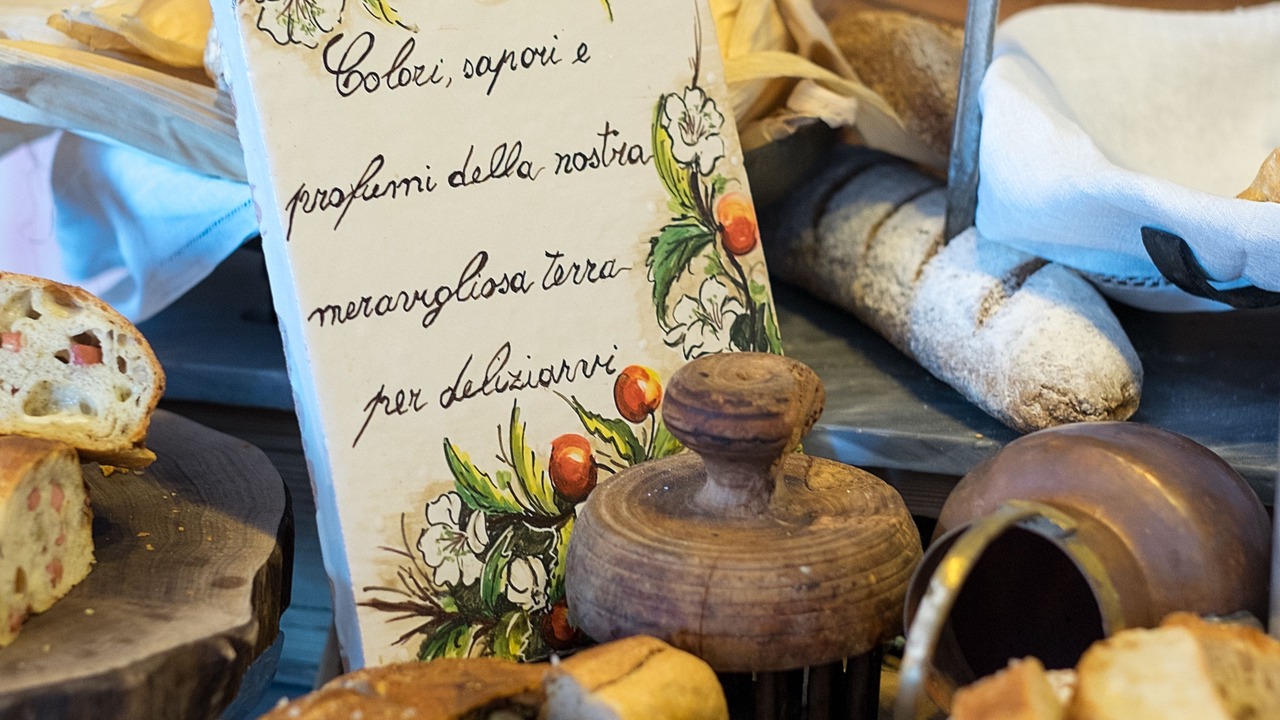 Colori, sapori e
profumi della nostra
meravigliosa terra
per deliziarvi